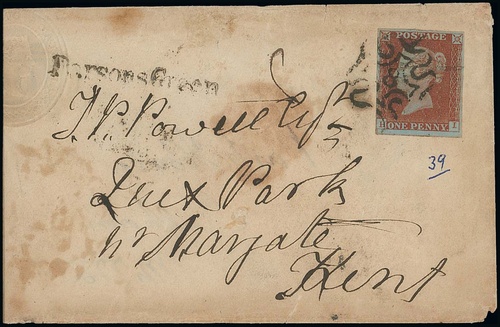 Parsons Green
POSTAGE
H ONE PENNY I
39
J.P. Powell Esqr
Quex Park
nr Margate
Kent